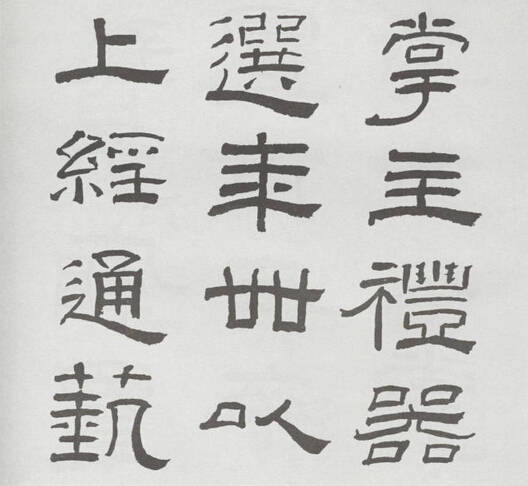 掌主禮器
選年卌以
上經通藝